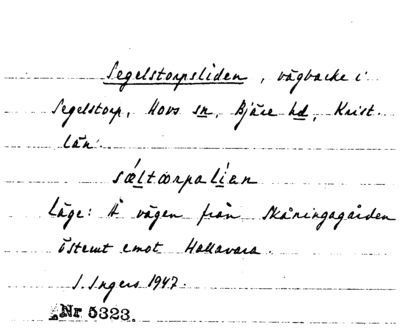 Segelstorpsliden, vägbacke i
Segelstorp, Hovs sn, Bjäre hd, Krist.
län.
sǽltorpalíen
Läge: Å vägen från Skåningagården
österut emot Hallavara.
I. Ingers 1947.
Nr 5323.